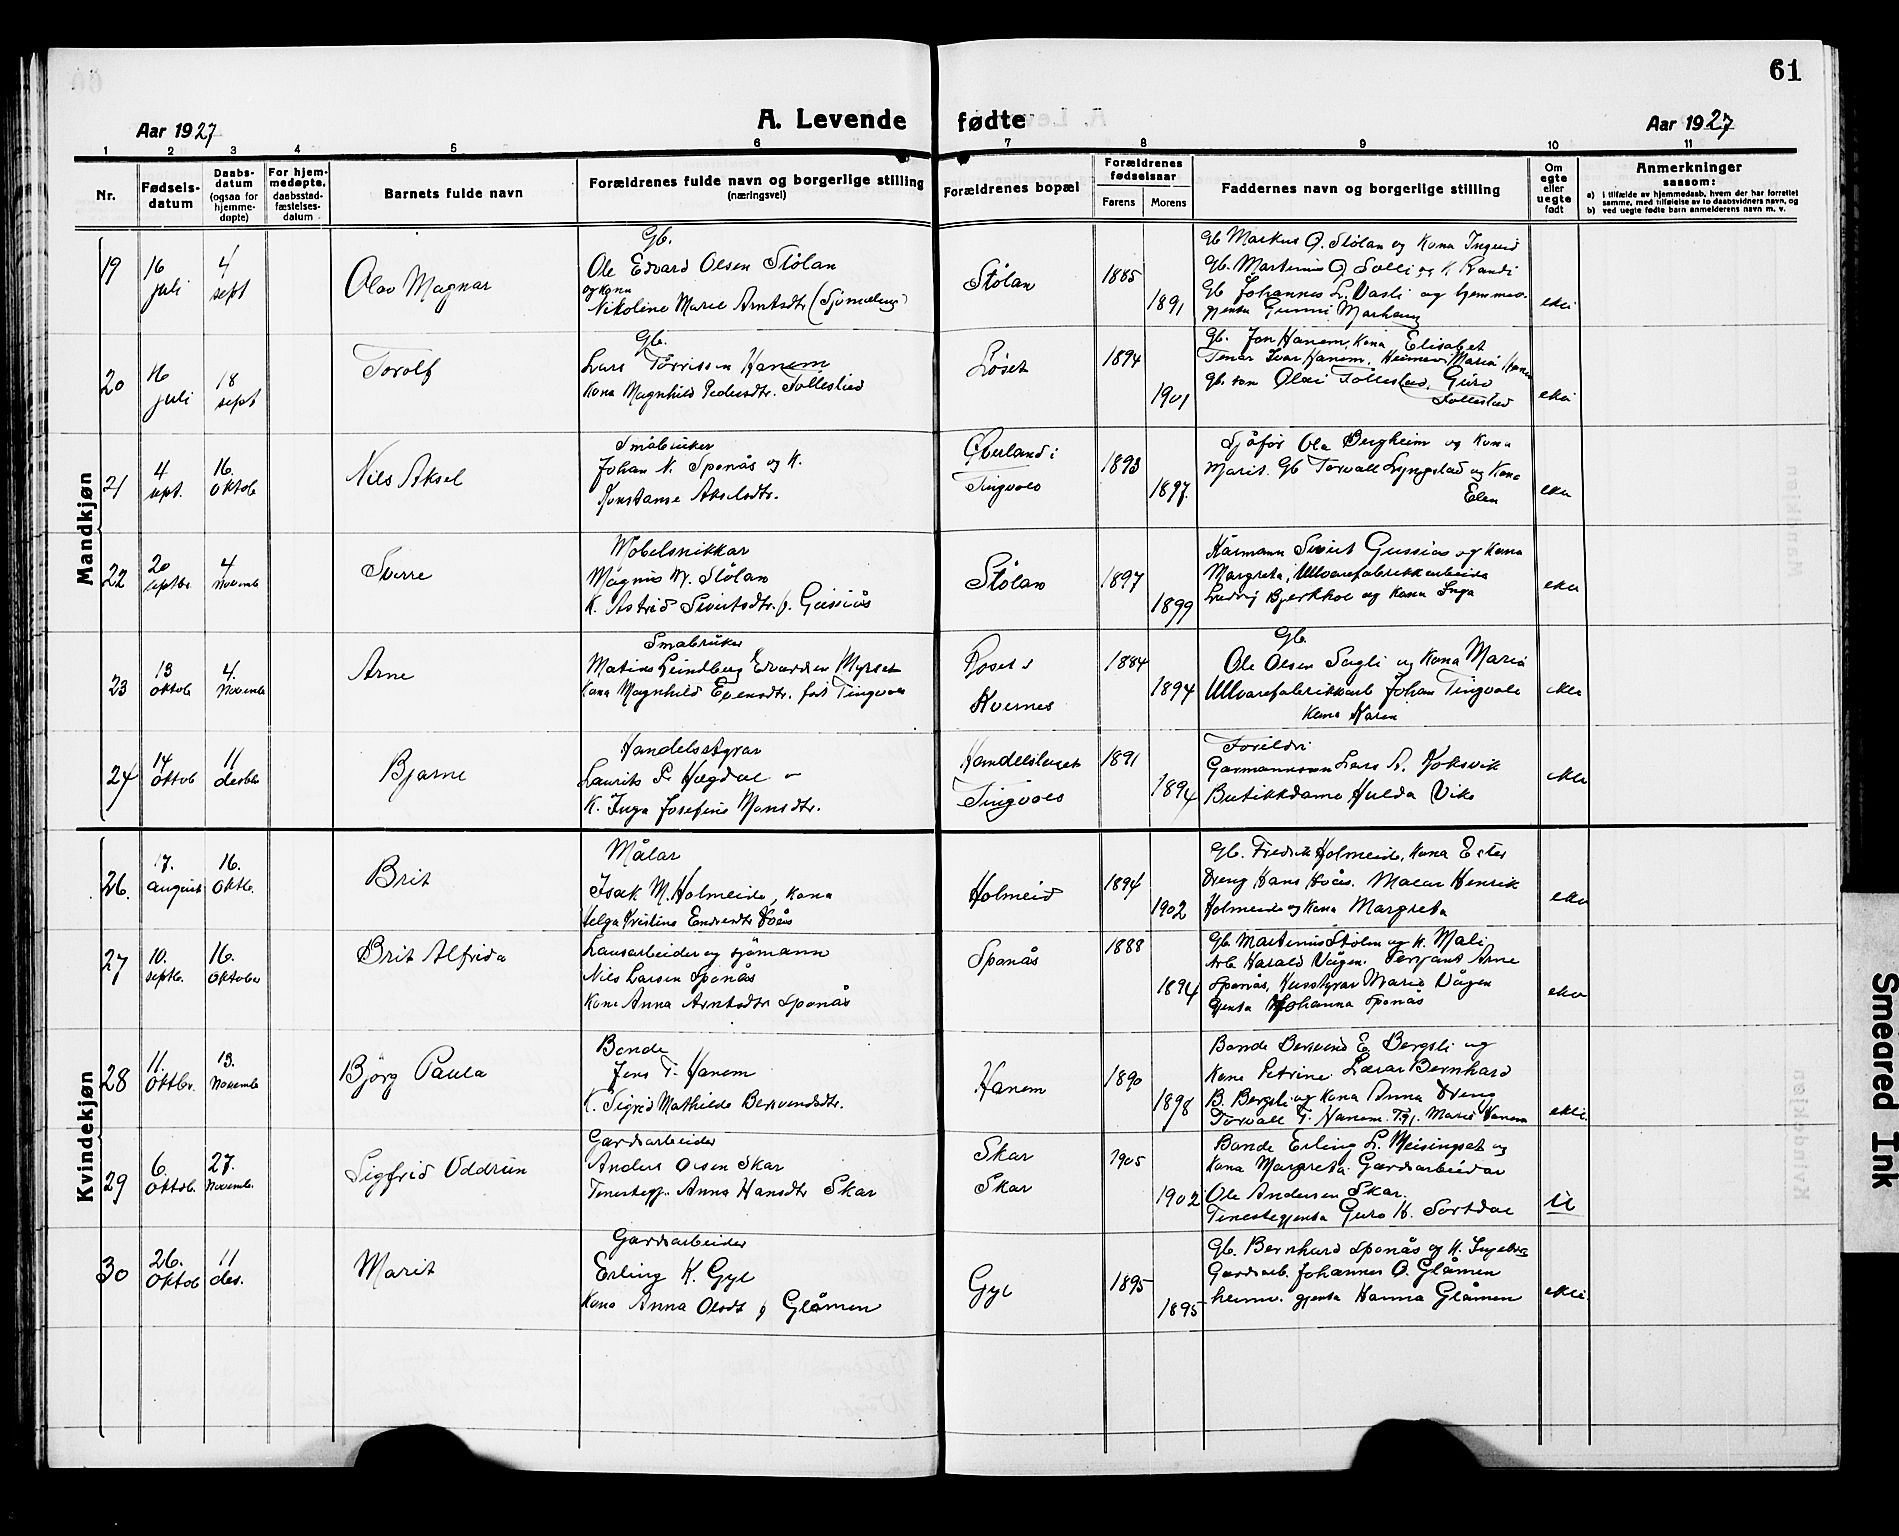 61
Aar 1927
A. Levende fødte
Aar 1927
1 2 3 4 5 6 7 8 9 10 11
Nr.
Fødsels-
datum
Daabs-
datum
(ogsaa for
hjemme-
døpte)
For hjem-
medøpte,
daabsstad-
fæstelses-
datum
Barnets fulde navn
Forældrenes fulde navn og borgerlige stilling
(næringsvei)
Forældrenes bopæl
Forældrenes
fødselsaar
Farens Morens
Faddernes navn og borgerlige stilling
Om
egte
eller
uegte
født
Anmerkninger
saasom:
a) i tilfælde av hjemmedaab, hvem der har forrettet
samme, med tilføielse av to daabsvidners navn, og
b) ved uegte fødte barn anmelderens navn m. v.
Mandkjøn
19
16 juli
4 sept
Olav Magnar
Gb.
Ole Edvard Olsen Stølan
og kona
Nikoline Marie Arntsdtr
Stølan
1885
1891
Gb Markus O. Stølan og Kona Ingerid
Gb. Martinus O Solli og K Randi
Gb Johannes L. Vasli og hjemmev-
gjenta Gunni
20
16 juli
18 sept
Torolf
Gb.
Lars Torrissen Hanem
Kona Magnhild Pedersdtr. Tollestad
Løset
1894
1901
Gb. Jon Hanem, Kona Elisabet
Ivar Hanem, Maria Hanem
Guro
21
4 sept.
16. oktob
Nils Aksel
Småbruker
Johan N. Sponås og K.
Konstanse Akselsdtr.
Øverland i
Tingvoll
1893
1897.
Sjåfør Ola Bergheim og Kona
Marit. Gb Torvall Lyngstad og Kona
Elen
22
20 septbr.
4 Novemb
Sverre
Møbelsnikkar
Magnus M. Stølan
K. Astrid Sivertsdtr. f. Gussiås
Stølan
1897
1899
Kårmann Sivert Gussiås og Kona
Margreta, Ullvarefabrikkarbeide
Ludvig Bjerkhoe og Kona Inga
23
13 oktob
4. Novemb
Arne
Småbruker
Matias Lindberg Edvardsen Myrset
Kona Magnhild Evensdtr. født Tingvoll
Kvernes
1884
1894
Gb
Ole Olsen Sagli og Kona Maria
Ullvarefabrikkarb Johan Tingvoll
Kona Karen
24
14 oktob
11 desbr
Bjarne
Handelsstyrar
Laurits P. Hægdal
K. Inga Josefine Monsdtr.
Handelslaget
Tingvoll
1891
1894
Foreldri
Lars A. Joksvik
Butikkdame Hulda Vike
Kvindekjøn
26.
17. august
16. Oktb.
Brit
Målar
Isak M. Holmeide, kona
Helga Kristine Endresdtr Hoås
Holmeid
1894
1902
Gb. Fredrik Holmeide, kona Ester
Dreng Hans Hoås. Målar Henrik
Holmeide og Kona Margreta
27
10. septb.
16. Oktober
Brit Alfrida
Lausarbeider og sjømann
Nils Larsen Sponås
Kona Anna Arntsdtr Sponås
Sponås
1888
1894
Gb Martinus Stølan og K. Mali
Arb Harald Vågen. Sersjant Arne
Sponås, Husstyrar Marie Vågen
Gjenta Johanna Sponås
28
11. Oktbr.
13. Novemb
Bjørg Paula
Bonde
Jens T. Hanem
K. Sigrid Mathilde Bersvendsdtr.
Hanem
1890
1898
Bonde Bersvend E Bergsli og
Kona Petrine Lærar Bernhard
B. Bergsli og Kona Anna Dreng
Torvall T. Hanem. Marie Hanem
29
6. Oktob.
27. Novemb.
Sigfrid Oddrun
Gardsarbeider
Anders Olsen Skar
Tenestegj. Anna Hansdtr Skar
Skar
Skar
1905
1902
Bonde Erling L. Meisingset og
Kona Margreta. Gardsarbeidar
Ole Andersen Skar.
Tenestegjenta Guro H. Sortdal
U
30
26. Oktob
11 des.
Marit
Gardsarbeider
Erling K. Gyl
Kona Anna Olsdt f Glåmen
Gyl
1895
1895
Gb. Bernhard Sponås og K. Ingeborg
Gardsarb. Johannes O. Glåmen
heimv. gjenta Hanna Glåmen
Smeared Ink